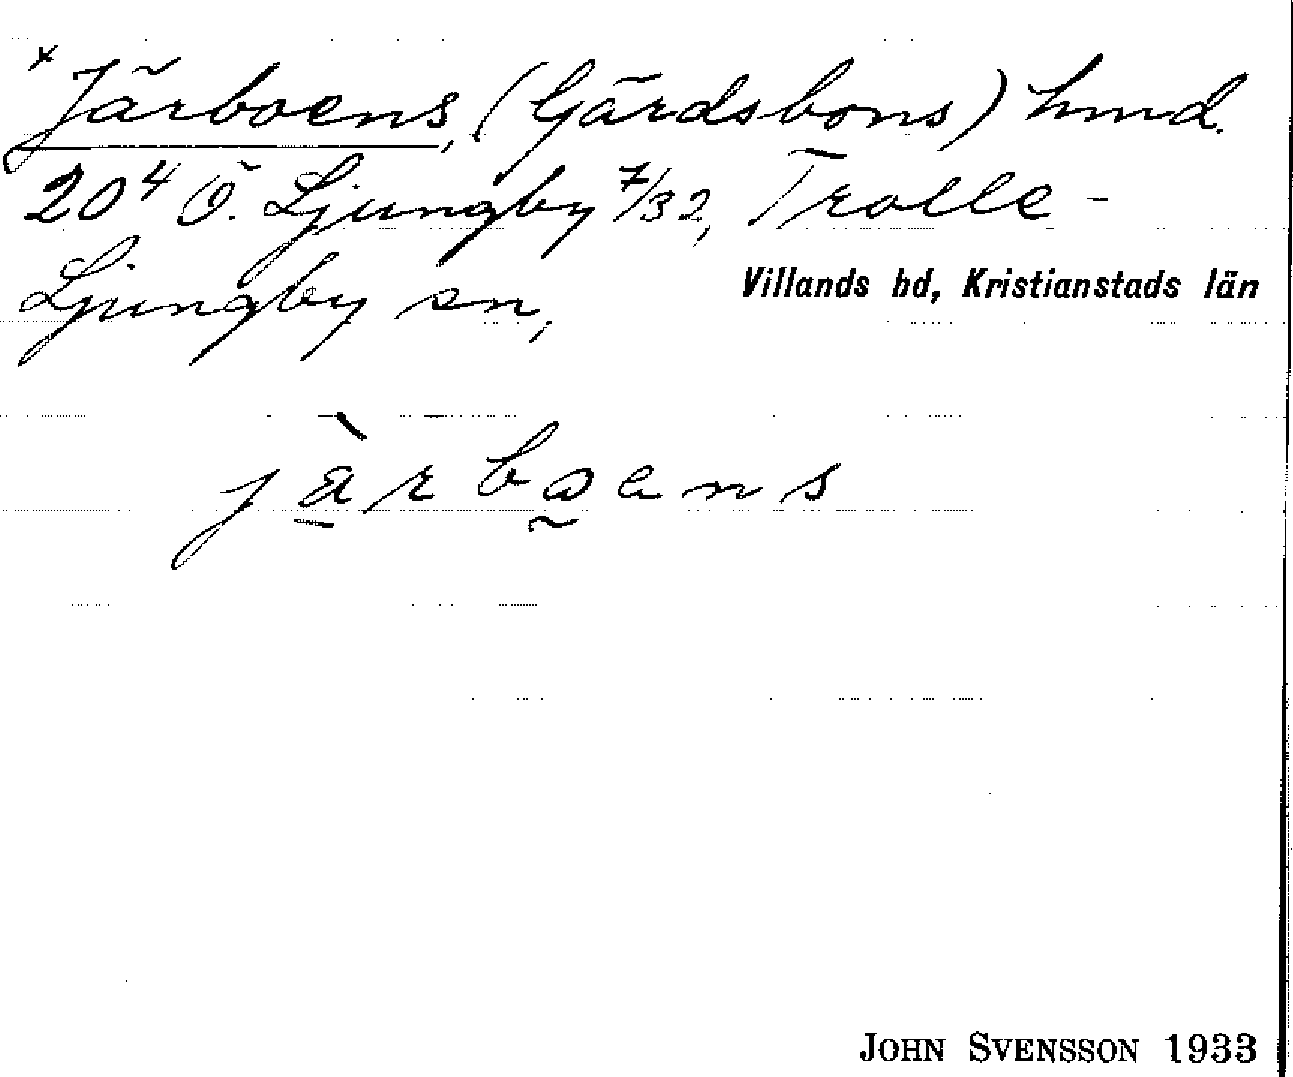 × Järboens, (Gärdsbons) hmd.
20⁴ Ö. Ljungby 7/32, Trolle-
Ljungby sn,
Villands hd, Kristianstads län
jàrboens
JOHN SVENSSON 1933